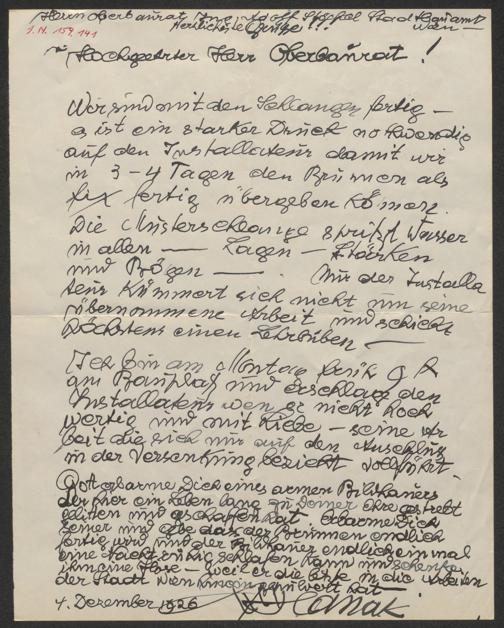 Herrn Oberbaurat Ing. Adolf Stöckl Stadtbauamt
Wien
Herzlichste Grüße!!!
I.N. 159.141
Hochgeehrter Herr Oberbaurat!
Wir sind mit den Schlangen fertig —
es ist ein starker Druck notwendig
auf den Installateur damit wir
in 3-4 Tagen den Brunnen als
fix fertig übergeben können.
Die Musterschlange spritzt Wasser
in allen — Lagen — Stärken
und Bögen — Nur der Installa
teur kümmert sich nicht um seine
übernommene Arbeit und schickt
höchstens einen Lehrbuben —
Ich bin am Montag früh 9 h
am Bauplatz und erschlage den
Installateur wen er nicht hoch
wertig und mit Liebe — seine Ar
beit die sich nur auf den Anschluss
in der Versenkung bezieht vollführt.
Gott erbarme Dich eines armen Bildhauers
der hier ein Leben lang zu Deiner Ehre gestrebt
gelitten und geschaffen hat erbarme Dich
seiner und gebe das der Brunnen endlich
fertig wird und der Bildhauer endlich einmal
eine Nacht ruhig schlafen kann und schenke
ihm eine Hose — weil er die letzte in die Arbeiten
der Stadt Wien hat
4. Dezember 1926 Hanak